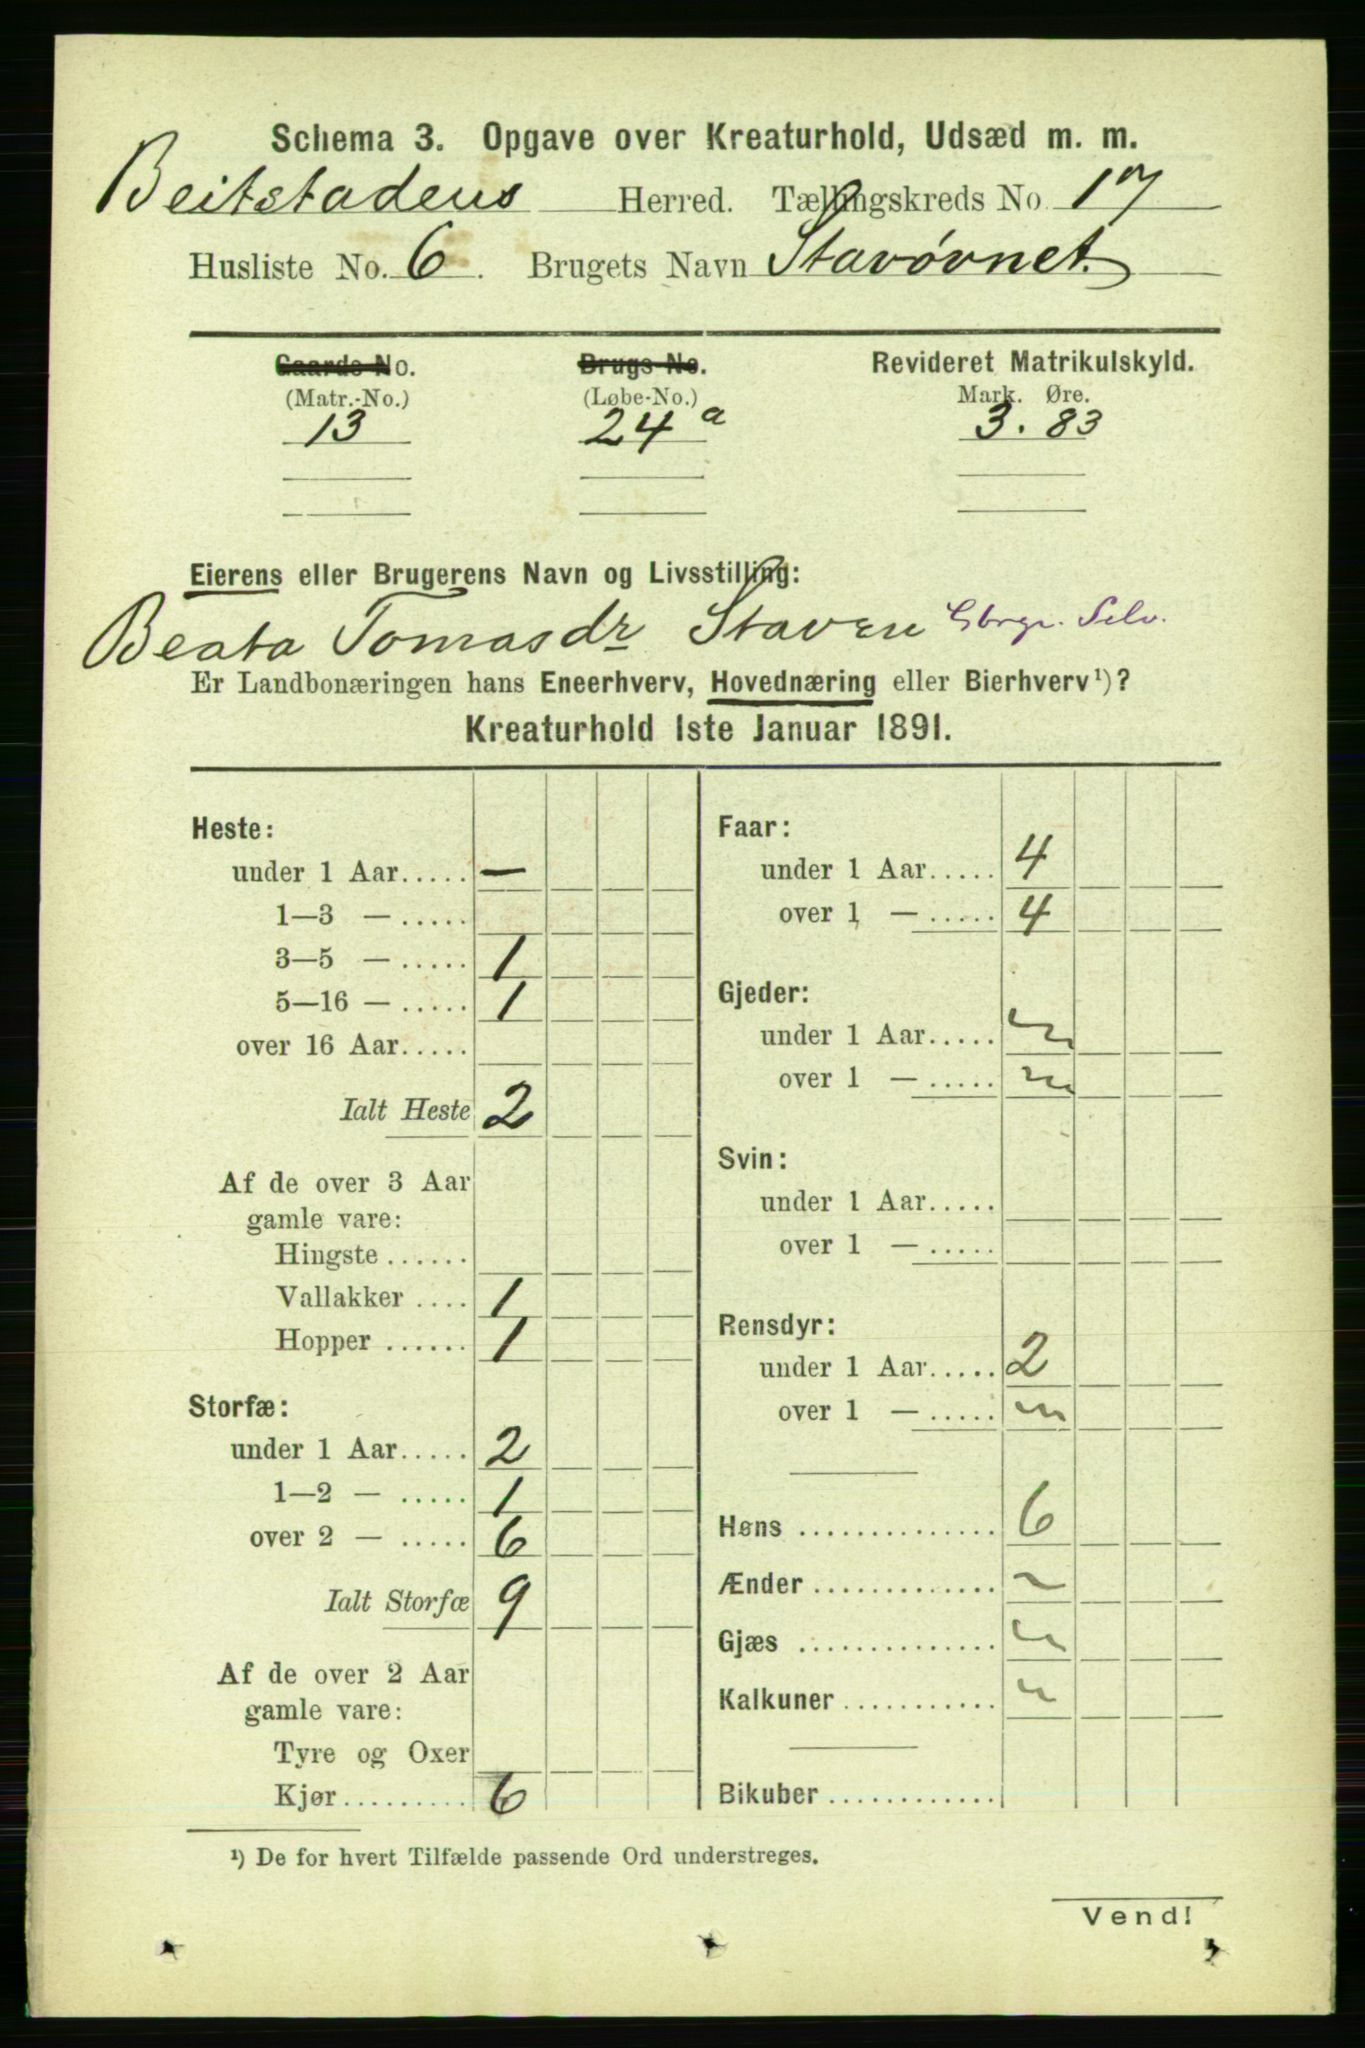 Schema 3. Opgave over Kreaturhold, Udsæd m. m.
Beitstadens Herred. Tællingskreds No. 17
Husliste No. 6. Brugets Navn Stavøvnet.
Gaards-No. Brugs-No. Revideret Matrikulskyld.
(Matr.-No.) (Løbe-No.) Mark. Øre.
13 24 a 3. 83
Eierens eller Brugerens Navn og Livsstilling:
Beata Tomasdr Staven Gbrgr. Selv.
Er Landbonæringen hans Eneerhverv, Hovednæring eller Bierhverv¹)?
Kreaturhold 1ste Januar 1891.
Heste:
under 1 Aar..... —
1—3 — .....
3—5 — ..... 1
5—16 — ..... 1
over 16 Aar.....
Ialt Heste 2
Af de over 3 Aar
gamle vare:
Hingste......
Vallakker .... 1
Hopper ...... 1
Storfæ:
under 1 Aar..... 2
1—2 — ..... 1
over 2 — ..... 6
Ialt Storfæ 9
Af de over 2 Aar
gamle vare:
Tyre og Oxer
Kjør......... 6
Faar:
under 1 Aar..... 4
over 1 — ..... 4
Gjeder:
under 1 Aar..... "
over 1 — ..... "
Svin:
under 1 Aar.....
over 1 — .....
Rensdyr:
under 1 Aar..... 2
over 1 — ..... "
Høns .............. 6
Ænder ............. "
Gjæs .............. "
Kalkuner ........... "
Bikuber .............
¹) De for hvert Tilfælde passende Ord understreges.
Vend!